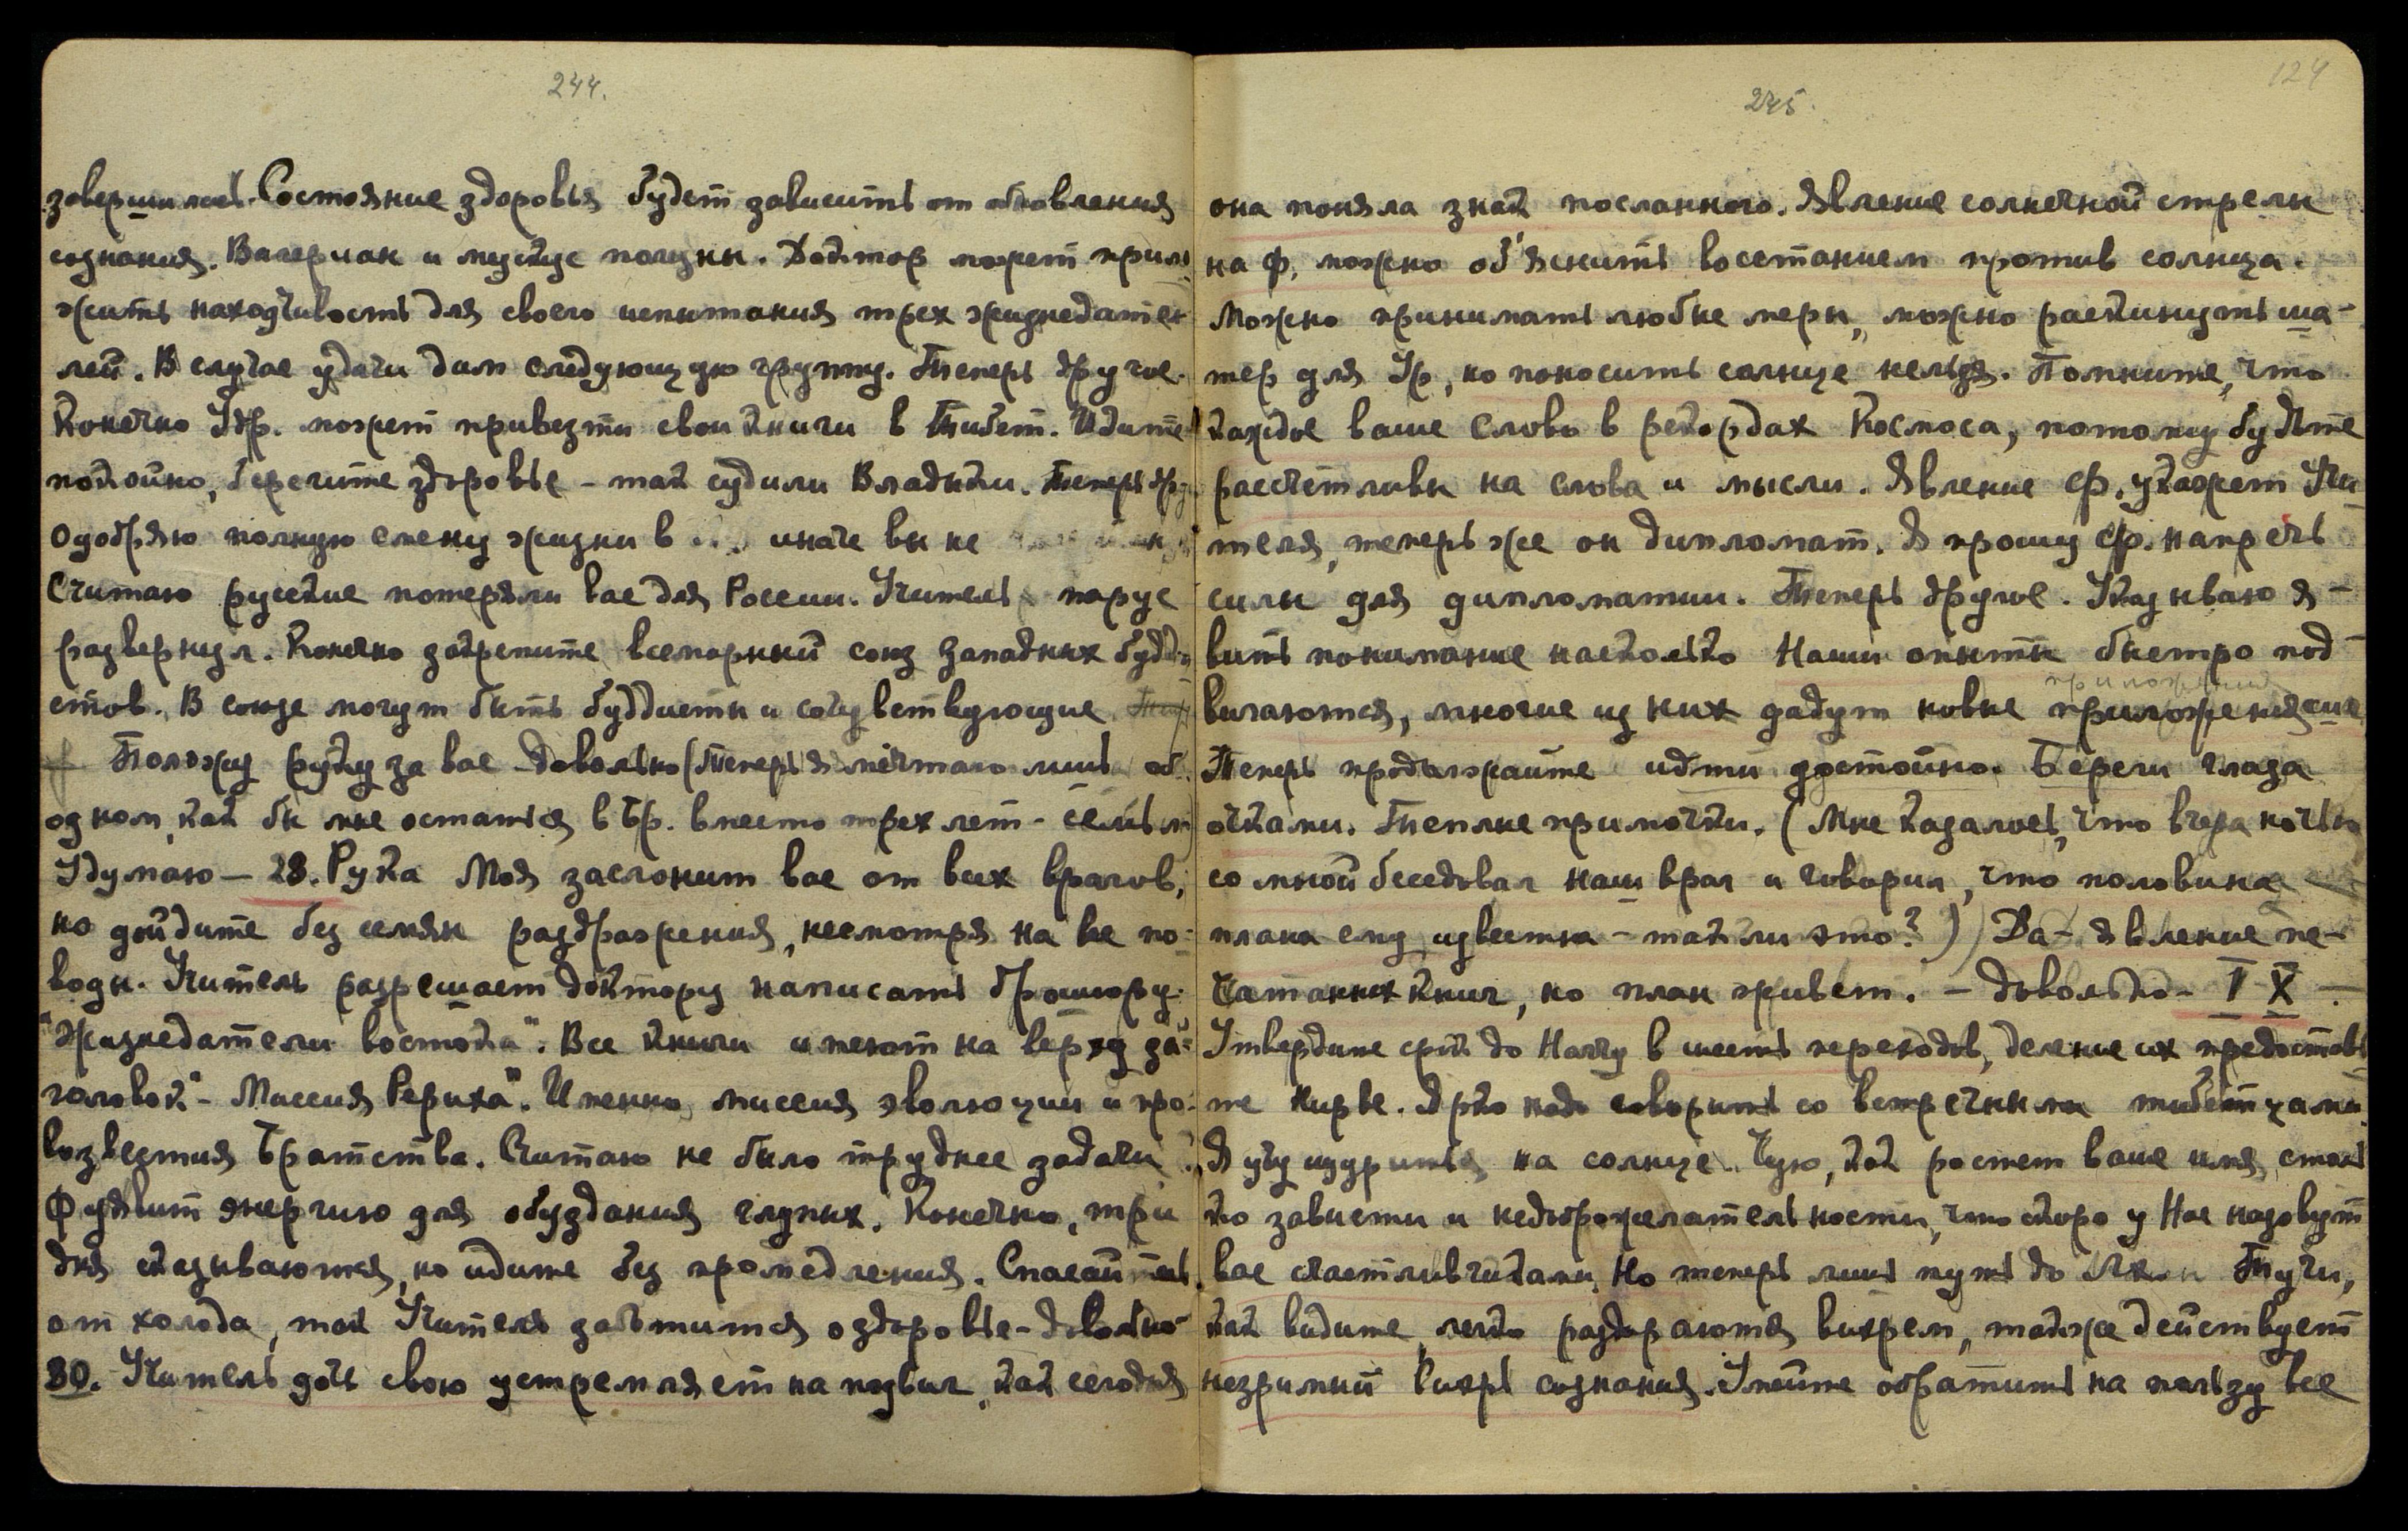 244.
завершилось. Состояние здоровья будет зависить от обновления
сознания. Валериан и мускус полезны. Доктор может прило
жить находчивость для своего испытания трех жизнедате
лей. В случае удачи дам следующую группу. Теперь другое.
Конечно Удр. может привезти свои книги в Тибет. Идите
покойно, берегите здоровье – так судили Владыки. Теперь др.
Одобряю полную смену жизни в ... иначе вы не
Считаю русские потеряли вас для России. Учитель парус
развернул. Конечно закрепите всемирный союз Западных будди
стов. В союзе могут быть буддисты и сочувствующие
Положу руку за вас – довольно (Теперь я мечтаю лишь об
одном, как бы мне остаться в Бр. вместо трех лет – семь л)
Удумаю – 28. Рука Моя заслонит вас от всех врагов,
но дойдите без семян раздражения, несмотря на все по-
воды. Учитель разрешает доктору написать брошюру.
"Жизнедатели востока". Все книги имеют на верху за-
головок "– Миссия Рериха". Именно, миссия эволюции и про-
возвестия Братства. Считаю не было труднее задачи.
Ф. уявит энергию для обуздания глупых. Конечно, три
дня сказываются, но идите без промедления. Спасайтесь
от холода, так Учитель заботится о здоровье – довольно –
30. Учитель дочь свою устремляет на подвиг, как сегодня
124
245.
она поняла знак посланного. Явление солнечной стрелы
на Ф. можно об'яснить восстанием против солнца.
Можно принимать любые меры, можно раскинуть ша-
тер для Ур, но поносить солнце нельзя. Помните, что
каждое ваше слово в рекордах Космоса, потому будьте
расчетливы на слова и мысли. Явление Ф. укажет Учи
теля, теперь же он дипломат. Я прошу Ф. напречь
силы для дипломатии. Теперь другое. Указываю я-
вить понимание насколько Наши опыты быстро под-
приложения
вигаются, многие из них дадут новые приложения
Теперь продолжайте идти достойно. Береги глаза
очками. Теплые примочки. (Мне казалось, что вчера ночью
со мной беседовал наш враг и говорил, что половина
плана ему известна – так ли это?) Да – явление пе-
чатанных книг, но план живет. – довольно – I X –
Утвердите срок до Нагчу в шесть переходов, деление их предоставь
те Кирве. Ярко надо говорить со встречными тибетцами
Я учу щуриться на солнце. Чую, как ростет ваше имя, столь
ко зависти и недоброжелательности, что скоро у Нас назовут
вас счастливчиками. Но теперь лишь путь до Тучи,
как видите, легко раздираются вихрем, также действует
незримый вихрь сознания. Умейте обратить на пользу все